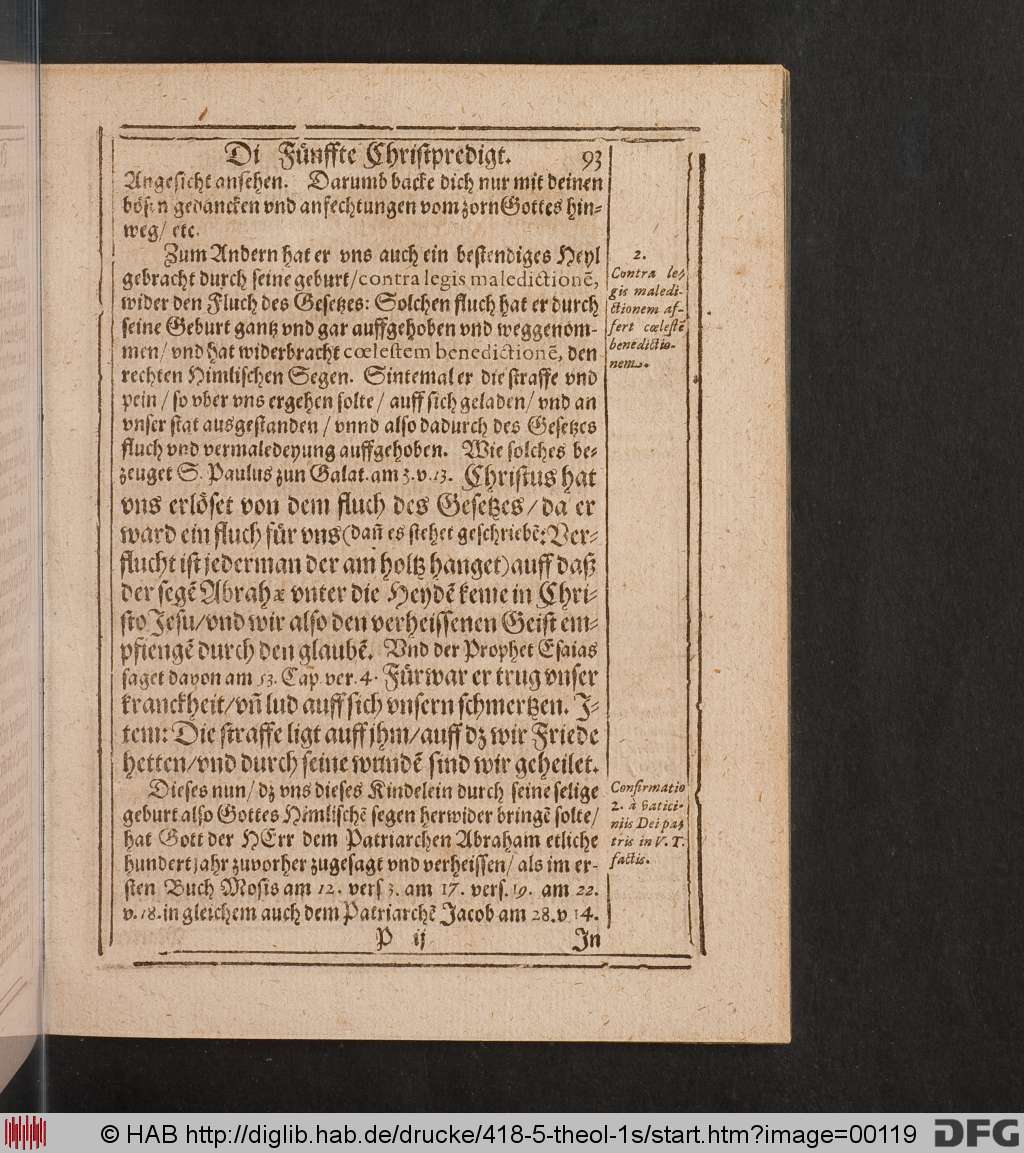 Di Fünffte Christpredigt. 93
Angesicht ansehen. Darumb backe dich nur mit deinen
bösen gedancken vnd anfechtungen vom zorn Gottes hin-
weg/ etc.
Zum Andern hat er vns auch ein bestendiges Heyl
gebracht durch seine geburt/contra legis maledictionē,
wider den Fluch des Gesetzes: Solchen fluch hat er durch
seine Geburt gantz vnd gar auffgehoben vnd weggenom-
men/ vnd hat widerbracht cœlestem benedictionē, den
rechten Himlischen Segen. Sintemal er die straffe vnd
pein / so vber vns ergehen solte / auff sich geladen/ vnd an
vnser stat ausgestanden / vnnd also dadurch des Gesetzes
fluch vnd vermaledeyung auffgehoben. Wie solches be-
zeuget S. Paulus zun Galat. am 3. v. 13. Christus hat
vns erlöset von dem fluch des Gesetzes / da er
ward ein fluch für vns (dañ es stehet geschriebē: Ver-
flucht ist jederman der am holtz hanget) auff daß
der segē Abrahæ vnter die Heydē keme in Chri-
sto Jesu/vnd wir also den verheissenen Geist em-
pfiengē durch den glaubē. Vnd der Prophet Esaias
saget davon am 53. Cap. ver. 4. Fürwar er trug vnser
kranckheit/vñ lud auff sich vnsern schmertzen. J-
tem: Die straffe ligt auff jhm/auff dz wir Friede
hetten/vnd durch seine wundē sind wir geheilet.
Dieses nun/ dz vns dieses Kindelein durch seine selige
geburt also Gottes Himlischē segen herwider bringē solte/
hat Gott der HErr dem Patriarchen Abraham etliche
hundert jahr zuvorher zugesagt vnd verheissen/ als im er-
sten Buch Mosis am 12. vers 3. am 17. vers. 19. am 22.
v. 18. in gleichem auch dem Patriarchē Jacob am 28. v 14.
P ij Jn
2.
Contra le-
gis maledi-
ctionem af-
fert cœlestē
benedictio-
nem.
Confirmatio
2. à vatici-
niis Dei pa-
tris in V. T.
factis.
© HAB http://diglib.hab.de/drucke/418-5-theol-1s/start.htm?image=00119 DFG